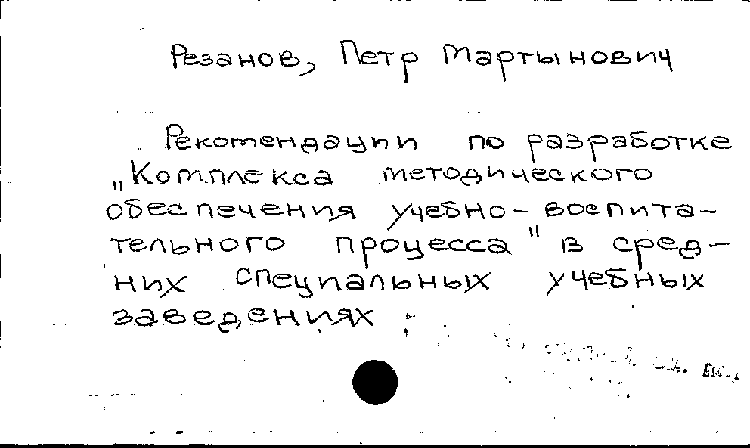 Резанов, Петр Мартынович
Рекомендации по разработке
„Комплекса методического
обеспечения учебно-воспита-
тельного процесса" в сред-
них специальных учебных
заведениях